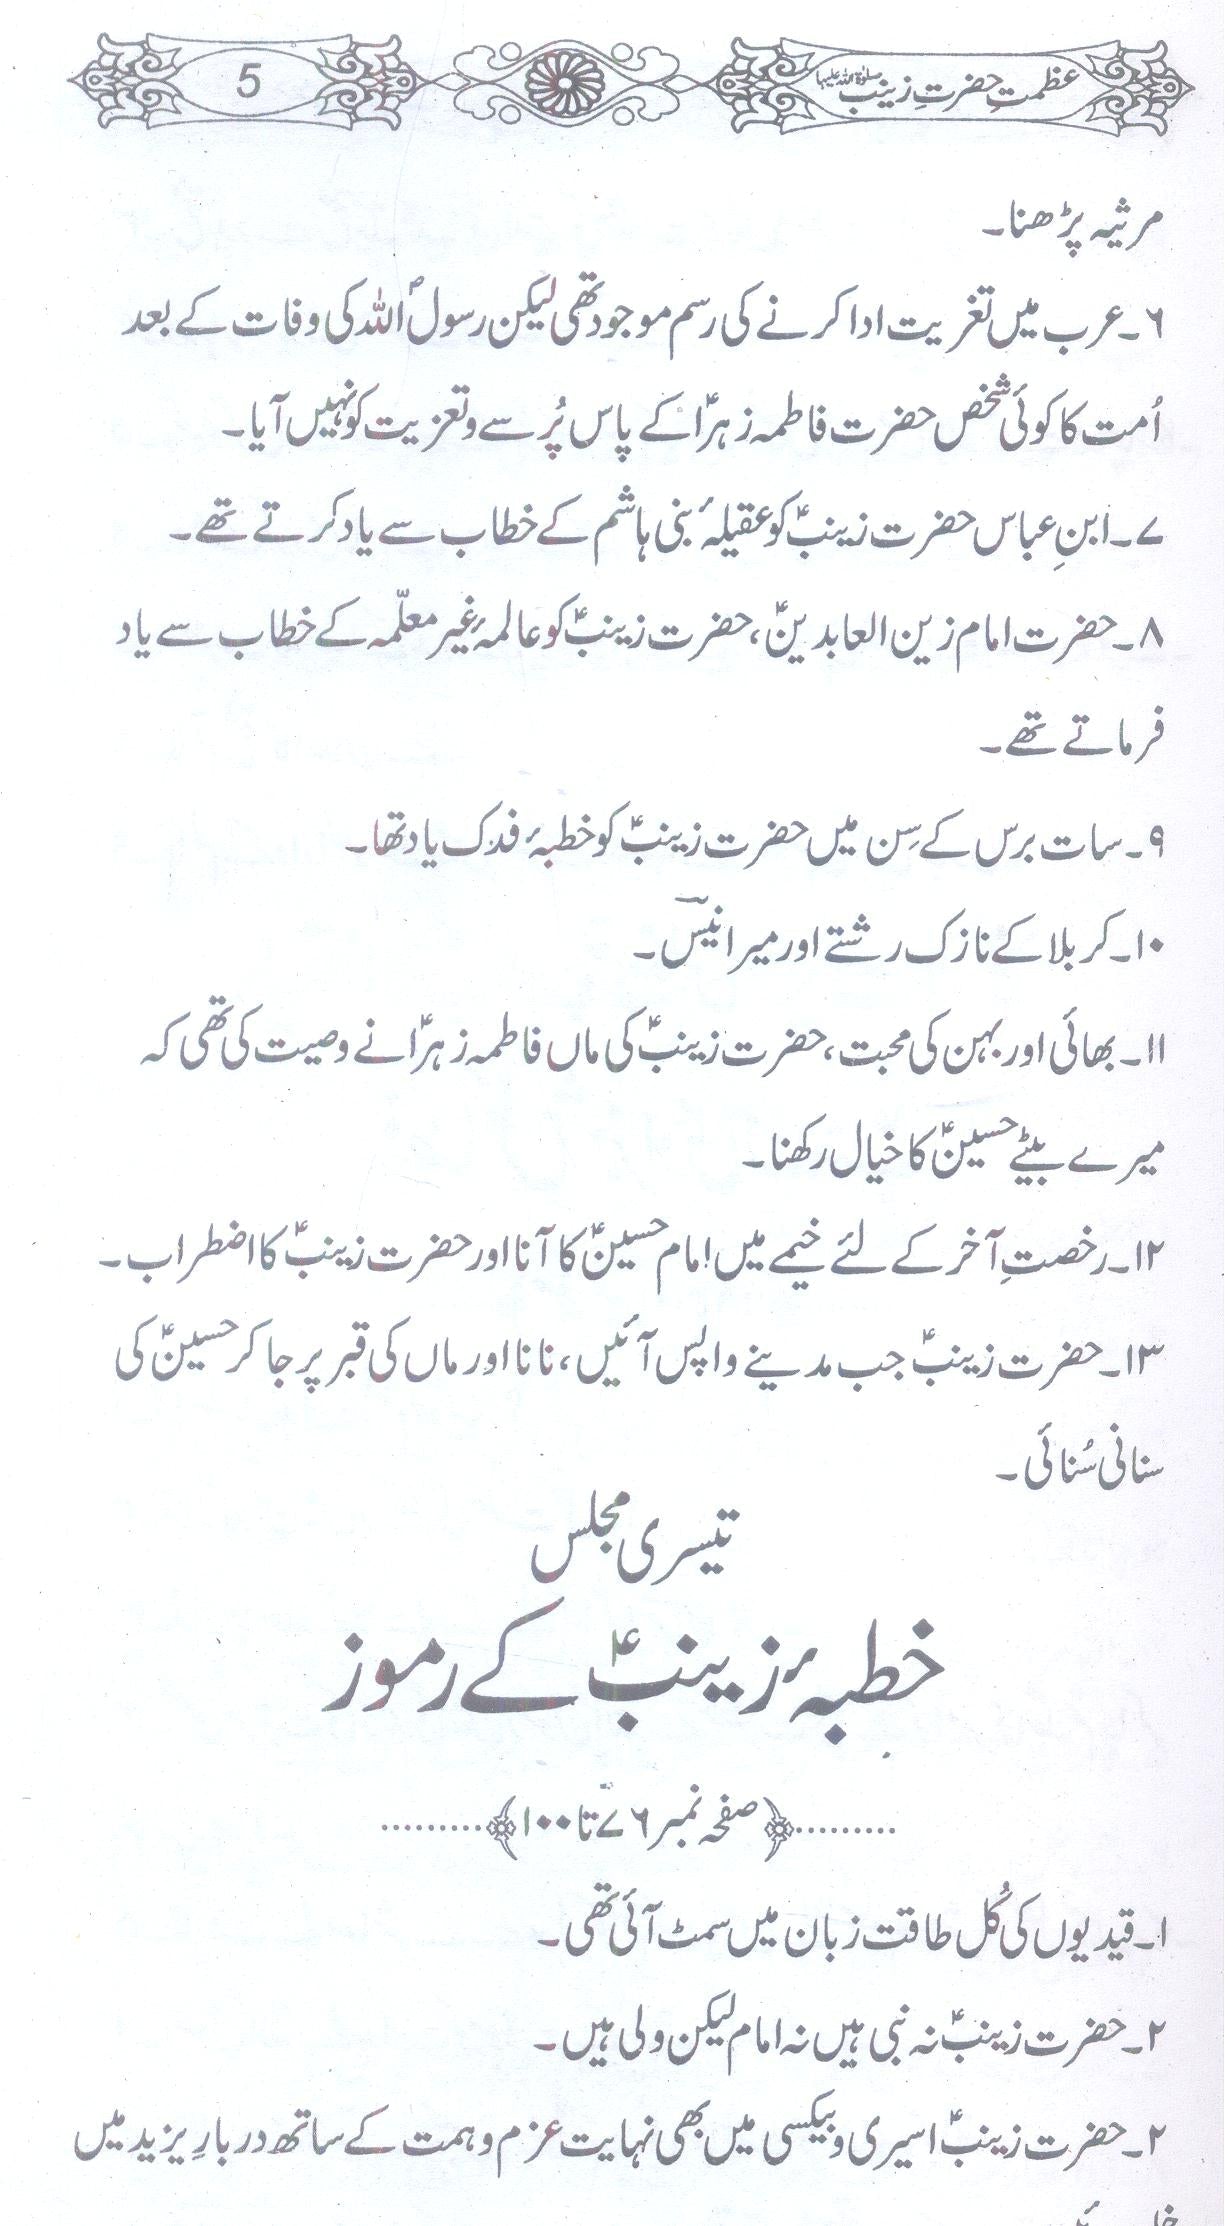 عظمتِ حضرتِ زینب صلوٰۃ اللہ علیہا
5
مرثیہ پڑھنا۔
۶۔ عرب میں تغریت ادا کرنے کی رسم موجود تھی لیکن رسولؐ اللہ کی وفات کے بعد
اُمت کا کوئی شخص حضرت فاطمہ زہراؑ کے پاس پُرسے و تعزیت کو نہیں آیا۔
۷۔ ابنِ عباس حضرت زینبؑ کو عقیلۂ بنی ہاشم کے خطاب سے یاد کرتے تھے۔
۸۔ حضرت امام زین العابدینؑ، حضرت زینبؑ کو عالمۂ غیر معلّمہ کے خطاب سے یاد
فرماتے تھے۔
۹۔ سات برس کے سِن میں حضرت زینبؑ کو خطبۂ فدک یاد تھا۔
۱۰۔ کربلا کے نازک رشتے اور میر انیسؔ۔
۱۱۔ بھائی اور بہن کی محبت، حضرت زینبؑ کی ماں فاطمہ زہراؑ نے وصیت کی تھی کہ
میرے بیٹے حسینؑ کا خیال رکھنا۔
۱۲۔ رخصتِ آخر کے لئے خیمے میں امام حسینؑ کا آنا اور حضرت زینبؑ کا اضطراب۔
۱۳۔ حضرت زینبؑ جب مدینے واپس آئیں، نانا اور ماں کی قبر پر جا کر حسینؑ کی
سنانی سُنائی۔
تیسری مجلس
خطبۂ زینبؑ کے رموز
صفحہ نمبر ۷۶ تا ۱۰۰
۱۔ قیدیوں کی کُل طاقت زبان میں سمٹ آئی تھی۔
۲۔ حضرت زینبؑ نہ نبی ہیں نہ امام لیکن ولی ہیں۔
۲۔ حضرت زینبؑ اسیری و بیکسی میں بھی نہایت عزم و ہمت کے ساتھ دربارِ یزید میں